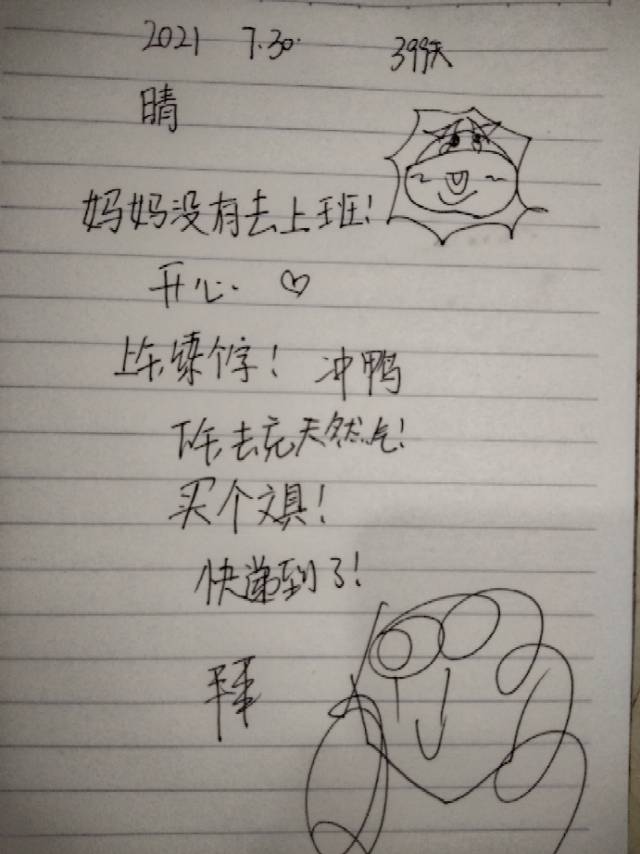 2021 7.30. 399天
晴
妈妈没有去上班!
开心. ♡
上午练个字! 冲鸭
下午去充天然气!
买个文具!
快递到了!